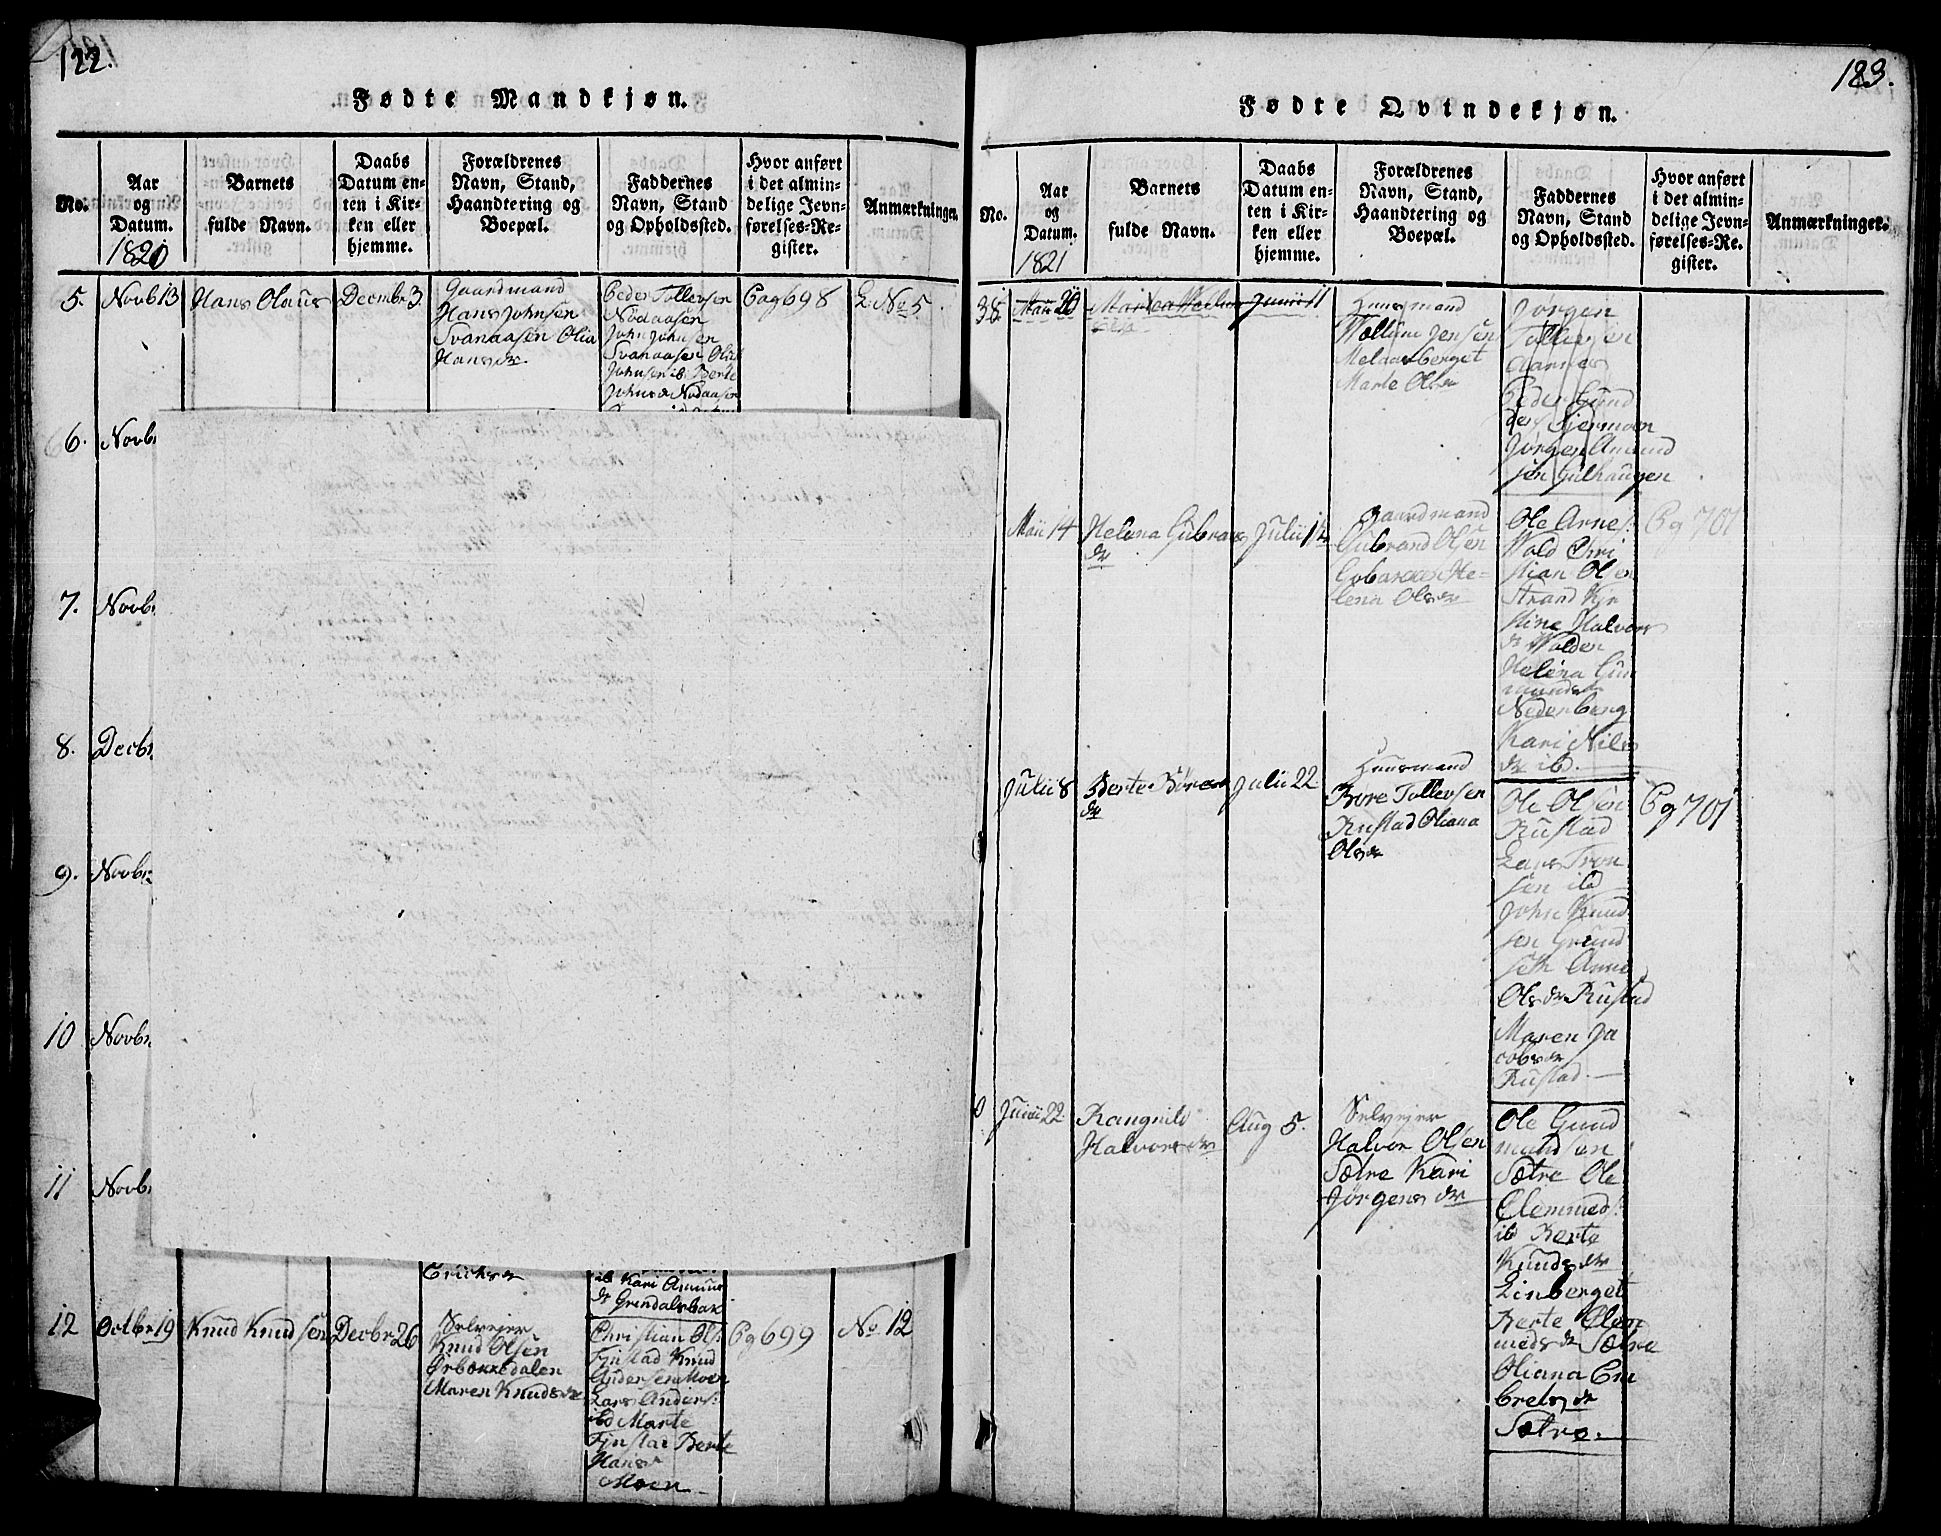 122.
Fødte Mandkjøn.
No.
Aar
og
Datum.
1820
Barnets
fulde Navn.
Daabs
Datum en-
ten i Kir-
ken eller
hjemme.
Forældrenes
Navn, Stand,
Haandtering og
Boepæl.
Faddernes
Navn, Stand
og Opholdssted.
Hvor anført
i det almin-
delige Jevn-
førelses-Re-
gister.
Anmærkninger.
5.
Novb 13
Hans Olaus
Decmbr 3.
Gaardmand
Hans Johnsen
Svanaasen Olia
Hans dr
Peder Tollevsen
Nodaasen
John Johnsen
Svanaasen Ola
Johnsen ib Berte
Johns dr Nodaasen
Pag 698
No 5
6. Novb
7. Novb
8. Decb
9. Novb
10 Novb
11 Novb
Erichs dr
ib Kari Amun
dr Grindalsbak
12
Octbr 19
Knud Knudsen
Decbr 26
Selveier
Knud Olsen
Ørbækkedalen
Maren Knuds dr
Christian Ols:
Fjnstad Knud
Andersen Moen
Lars Anders:
ibd Marte
Fjnstad Berte
Hans
Moen
Pg 699
No 12
123.
Fødte Qvindekjøn.
No.
Aar
og
Datum.
1821
Barnets
fulde Navn.
Daabs
Datum en-
ten i Kir-
ken eller
hjemme.
Forældrenes
Navn, Stand,
Haandtering og
Boepæl.
Faddernes
Navn, Stand
og Opholdssted.
Hvor anført
i det almin-
delige Jevn-
førelses-Re.
gister.
Anmærkninger.
38.
Maii 20
Junii 11
Huusmand
Wellum Jensen
Melaasberget
Marte Ols dr
Jørgen
Tollevsen
Aarnes
Peder Gund
ders Stermoen
Jørgen Amund
sen Julhaugen
Maii 14
Helena Gubrans
dr
Julii 1
Gaardmand
Gubrand Olsen
He-
lena Ols dr
Ole Arnes:
Wold Chri
stian Olsen
Strand Kir
stine Halvors
dr Wolden
Helena Gun
munds dr
Nederberg
Kari Nils
dr ib.
Pg 701
Julii 8
Berte Børes
dr
Julii 22
Huusmand
Børe Tollevsen
Rustad Oliana
Ols dr
Ole Olsen
Rustad
Lars Tron
sen ibd
John Knud
sen Grund
seth Anne
Ols dr Rustad
Maren Ja
cobs dr
Rustad.
Pg 701
0
Junii 22
Rangnild
Halvors dr
Aug 5.
Selveier
Halvor Olsen
Sætre Kari
Jørgens dr
Ole Gund
mundsen
Sætre Ole
Clemmeds:
ib Berte
Knuds dr
Linberget
Berte Clem
meds dr Sætre
Oliana Em
brets dr
Sætre.